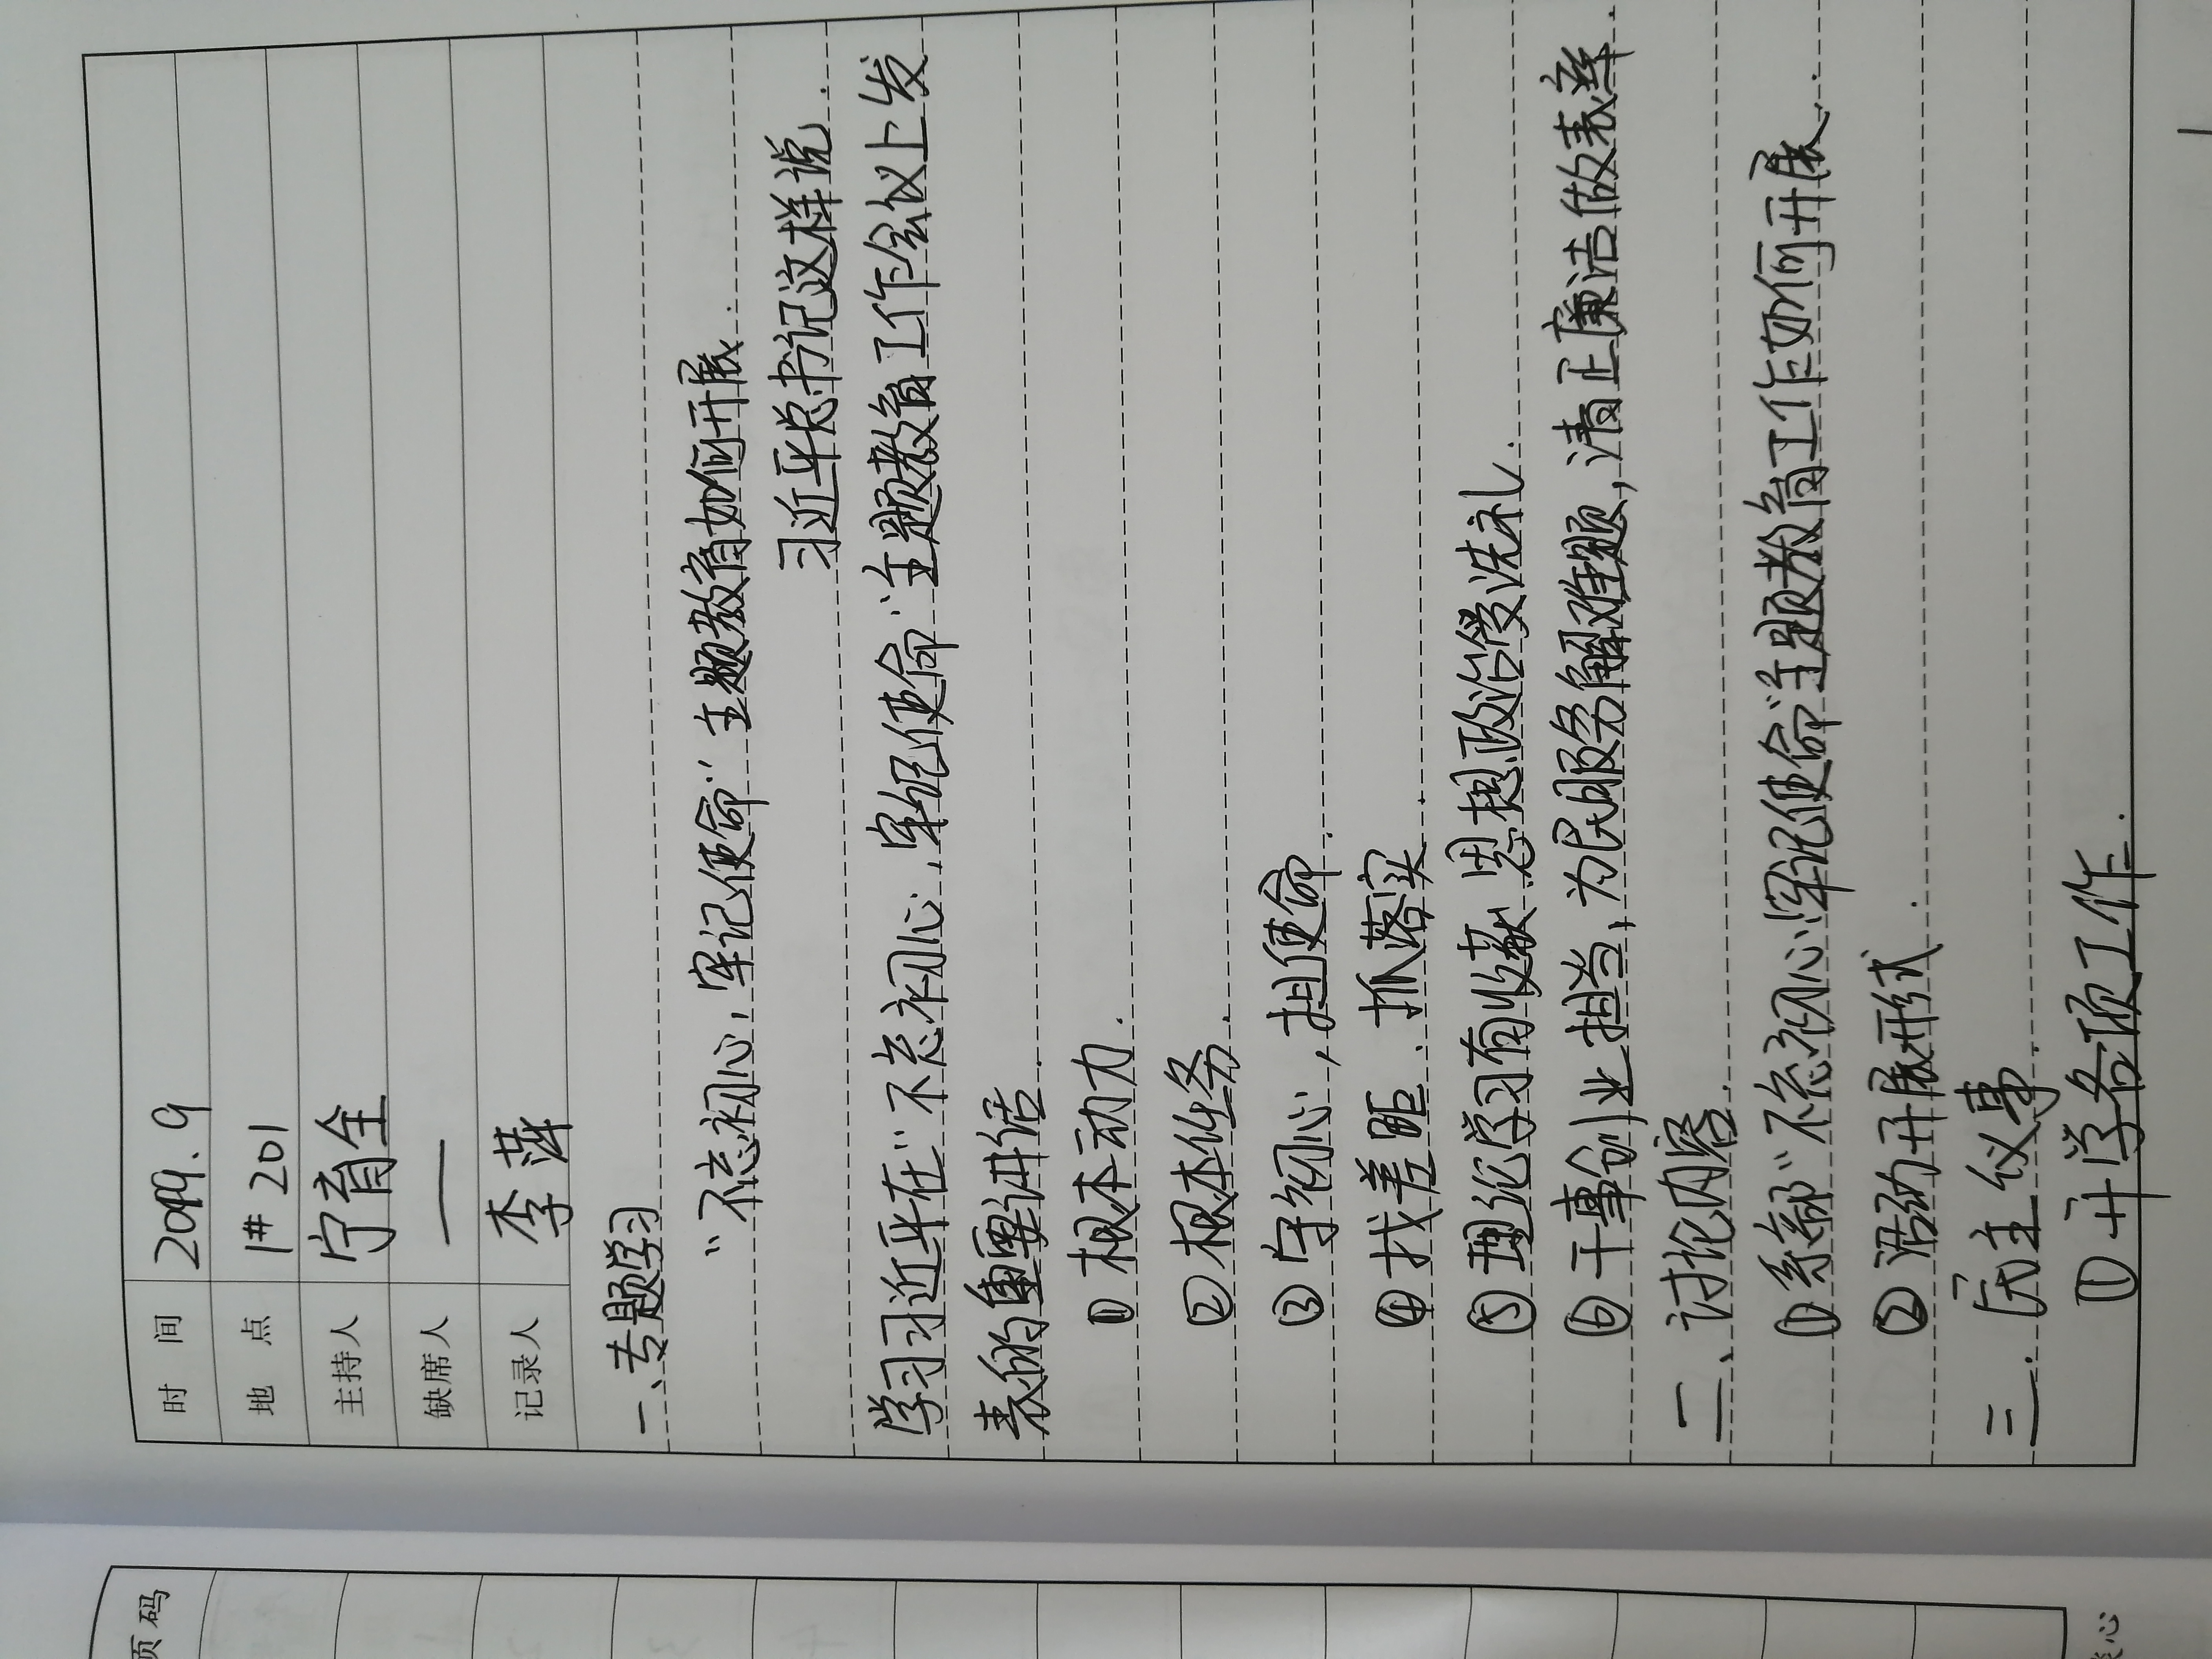 时 间 2019.9
地 点 1# 201
主持人 宁育全
缺席人 —
记录人 李萍
一、专题学习
"不忘初心,牢记使命"主题教育如何开展.
习近平总书记这样说.
学习习近平在"不忘初心,牢记使命"主题教育工作会议上发
表的重要讲话.
① 根本动力.
② 根本任务.
③ 守初心,担使命.
④ 找差距.抓落实.
⑤ 理论学习有收获.思想政治受洗礼.
⑥ 干事创业担当,为民服务解难题,清正廉洁做表率.
二、讨论内容.
① 系部"不忘初心牢记使命"主题教育工作如何开展.
② 活动开展形式.
三.民主议事.
① 开学各项工作.
1
页码
心